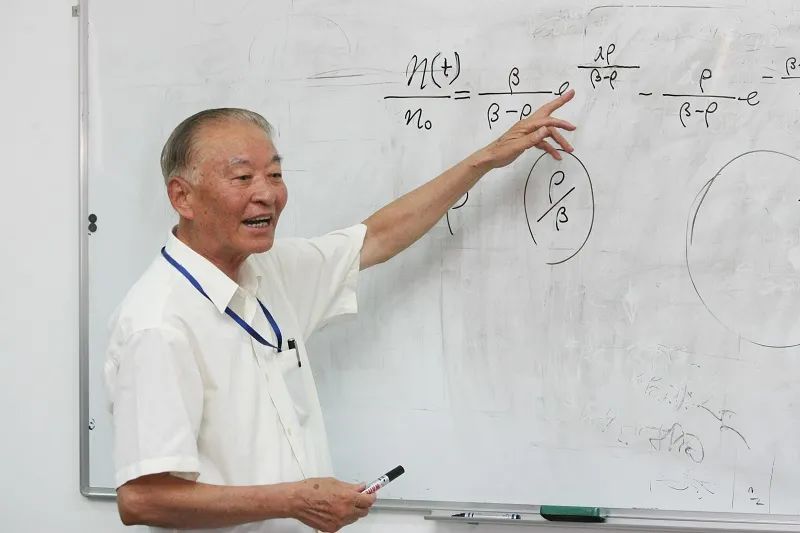 η(t)/n₀ = β/(β-ρ) e^(λρ/(β-ρ)) - ρ/(β-ρ) e^(-β-
ρ
ρ/β